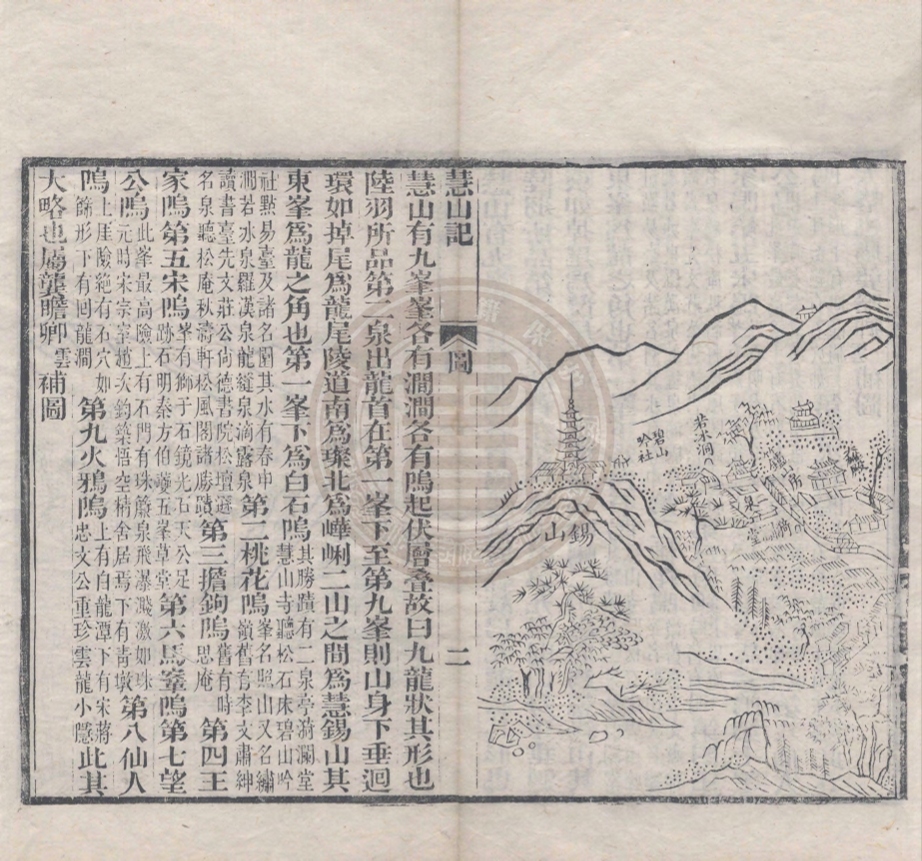 若冰洞
碧山吟社
錫山
慧山記
圖
二
慧山有九峯峯各有澗澗各有塢起伏層叠故曰九龍狀其形也
陸羽所品第二泉出龍首在第一峯下至第九峯則山身下垂迴
環如掉尾爲龍尾陵道南爲璨北爲嶂二山之間爲慧錫山其
東峯爲龍之角也第一峯下爲白石塢其勝蹟有二泉亭漪瀾堂慧山寺聽松石床碧山吟
社點易臺及諸名園其水有春申澗若水泉羅漢泉龍縫泉滴露泉第二桃花塢峯名照山又名繡嶺舊有李文肅紳
讀書臺先文莊公尚德書院松壇名泉聽松庵秋濤軒松風閣諸廢蹟第三擔鉤塢舊有時思庵第四王
家塢第五宋塢峯有獅子石鏡光石天公足跡石明秦方伯夔五峯草堂第六馬塢第七望
公塢此峯最高險上有石門有珠簾泉飛瀑濺激如珠元時宋宗室趙次鈞築悟空精舍居焉下有靑墩第八仙人
塢上厓險絕有石穴如篩形下有囘龍澗第九火鴉塢上有白龍潭下有宋蔣忠文公重珍雲龍小隱此其
大略也屬龔瞻卿雲補圖